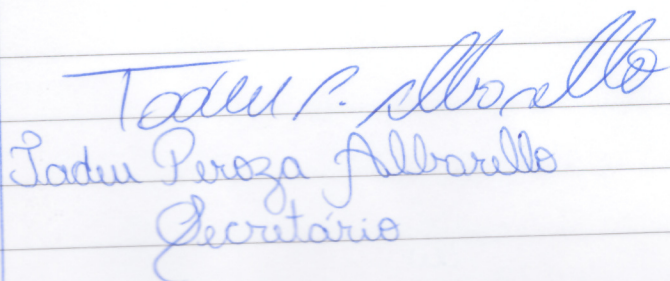 Tadeu P. Albarello
Tadeu Peroza Albarello
Secretário